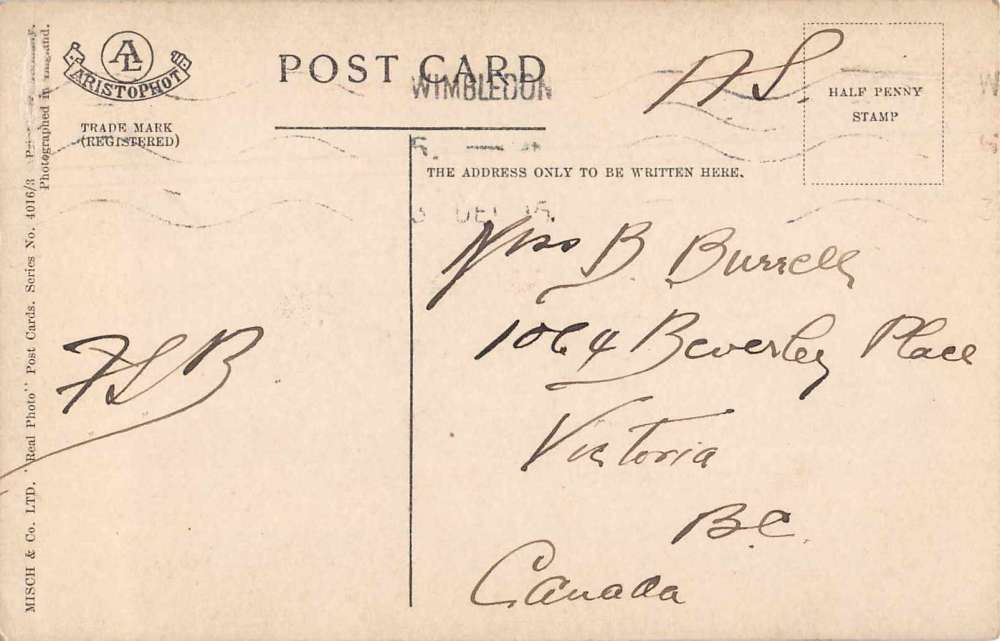 AL
ARISTOPHOT
TRADE MARK
(REGISTERED)
POST CARD
WIMBLEDON
A S.
HALF PENNY
STAMP
THE ADDRESS ONLY TO BE WRITTEN HERE.
Miss B. Burrell
1064 Beverley Place
Victoria
B.C.
Canada
FSB
MISCH & Co. LTD. "Real Photo" Post Cards. Series No. 4016/3
Photographed in England.